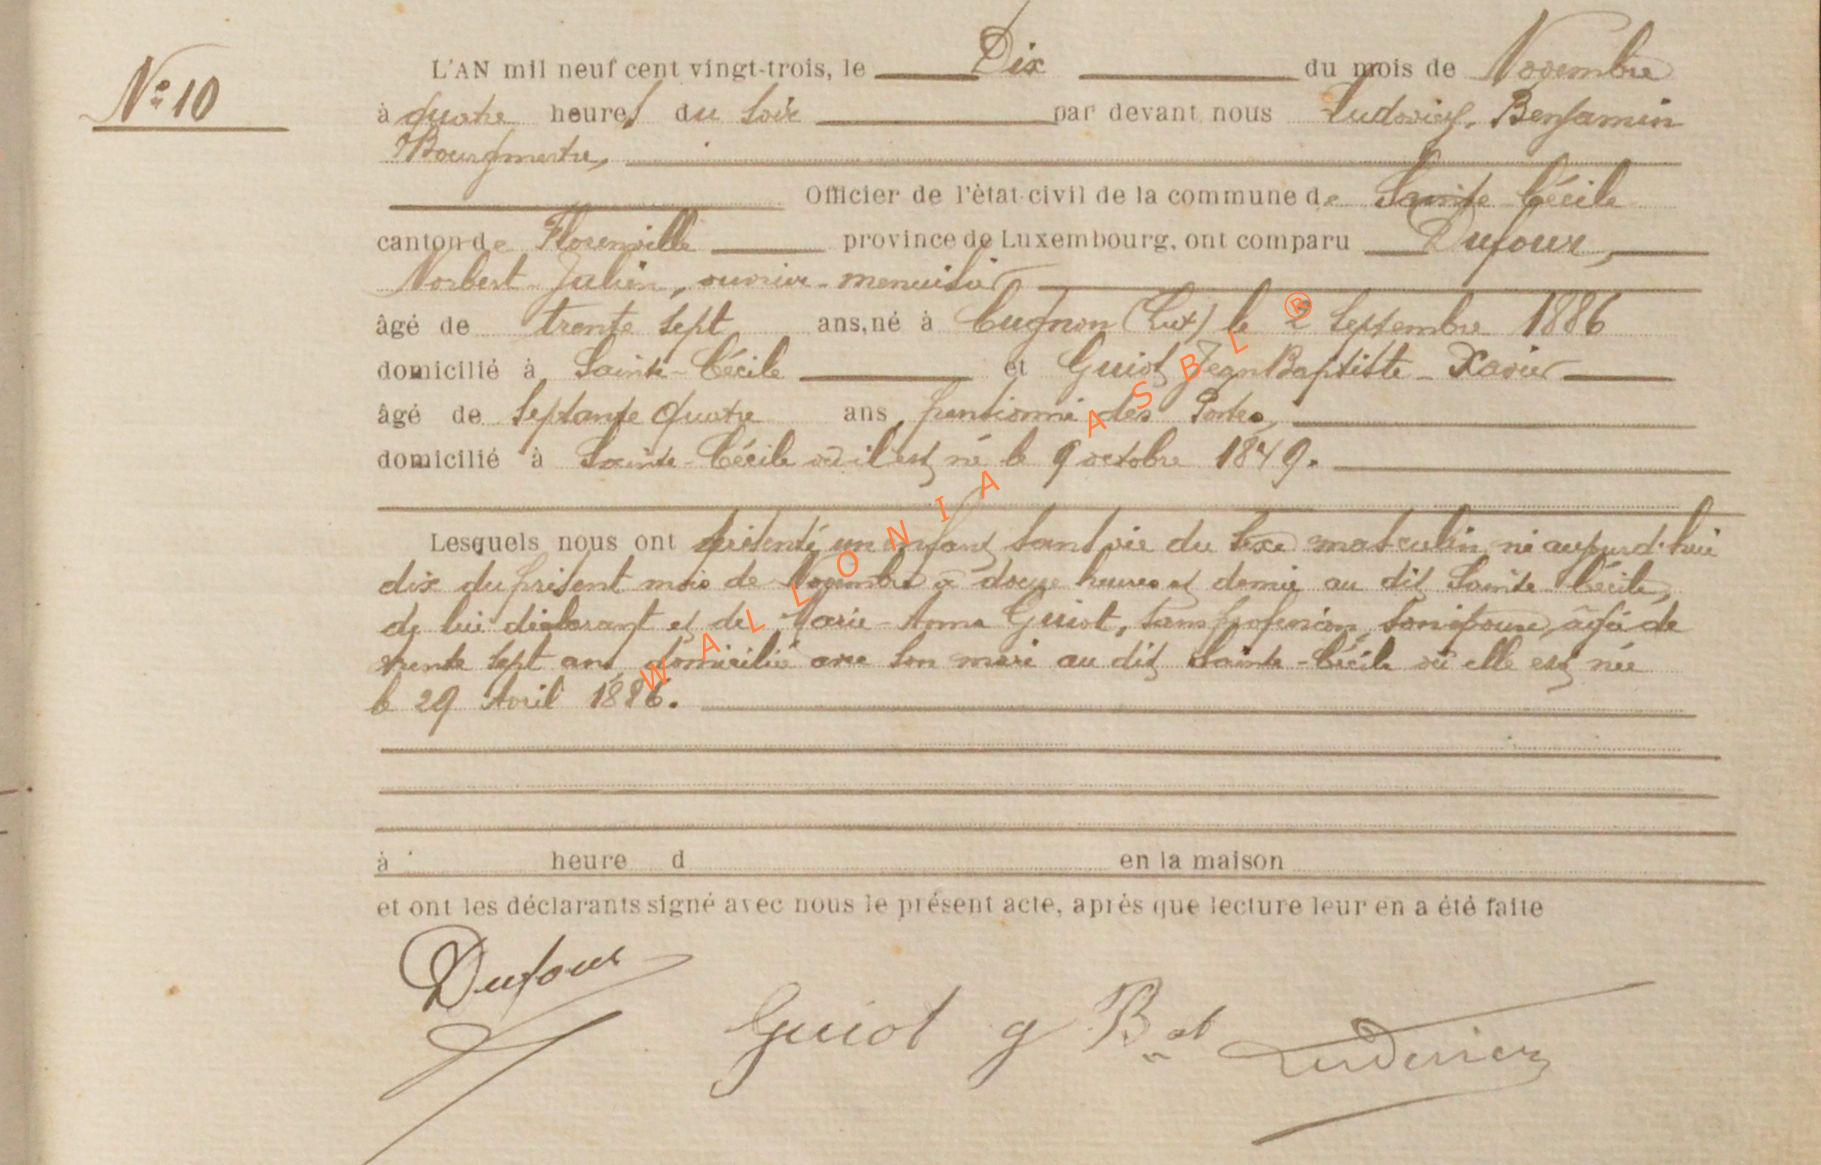 N° 10
L'AN mil neuf cent vingt-trois, le Dix du mois de Novembre
à quatre heures du soir par devant nous Ludovicy, Benjamin
Bourgmestre,
Officier de l'état-civil de la commune de Sainte Cécile
canton de Florenville province de Luxembourg, ont comparu Dufour,
Norbert-Julien, ouvrier-menuisier
âgé de trente sept ans, né à Cugnon (Lux) le 2 Septembre 1886
domicilié à Sainte-Cécile et Guiot Jean Baptiste-Xavier
âgé de Septante Quatre ans, pensionné des Postes,
domicilié à Sainte-Cécile où il est né le 9 octobre 1849.
Lesquels nous ont présenté un enfant sans vie du sexe masculin, né aujourd'hui
dix du présent mois de Novembre à douze heures et demie au dit Sainte-Cécile,
de lui déclarant et de Marie-Anna Guiot, sans profession, son épouse, âgée de
trente sept ans, domiciliée avec son mari au dit Sainte-Cécile où elle est née
le 29 Avril 1886.
à heure d en la maison
et ont les déclarants signé avec nous le présent acte, après que lecture leur en a été faite
Dufour
Guiot J Bat Ludovicy
WALLONIA ASBL ®